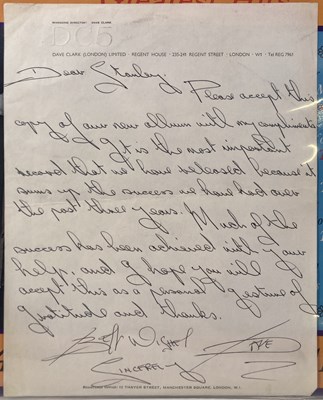 MANAGING DIRECTOR · DAVE CLARK
DC5
DAVE CLARK (LONDON) LIMITED · REGENT HOUSE · 235-241 REGENT STREET · LONDON · W1 · Tel REG 7961
Dear Stanley,
Please accept this
copy of our new album with my compliments
It is the most important
record that we have released because it
sums up the success we have had over
the past three years. Much of the
success has been achieved with your
help, and I hope you will
accept this as a personal gesture of
gratitude and thanks.
Best Wishes
Sincerely Dave
THAYER STREET, MANCHESTER SQUARE, LONDON, W.1